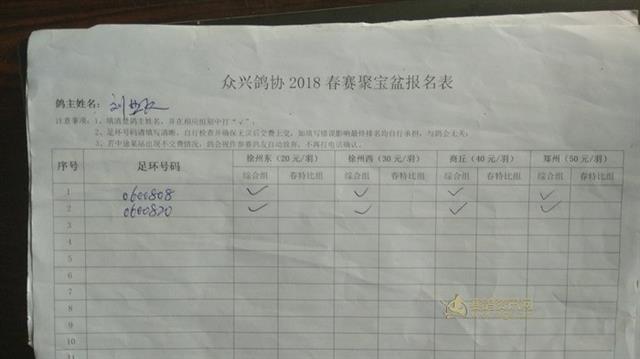 众兴鸽协 2018 春赛聚宝盆报名表
鸽主姓名:
注意事项:1、填清楚鸽主姓名,并在相应组别中打“√”;
2、足环号码请填写清晰,自行检查并确保无误后交费上交,如填写错误影响最终排名均自行承担,与鸽会无关;
3、若中途某站出现不交费情况,鸽会视作参赛鸽友自动放弃,不再打电话确认。
序号 足环号码 徐州东(20 元/羽) 徐州西(30 元/羽) 商丘(40 元/羽) 郑州(50 元/羽)
综合组 春特比组 综合组 春特比组 综合组 春特比组 综合组 春特比组
1 0600808 ✓ ✓ ✓ ✓
2 0600820 ✓ ✓ ✓ ✓
3
4
5
6
7
8
9
10
11